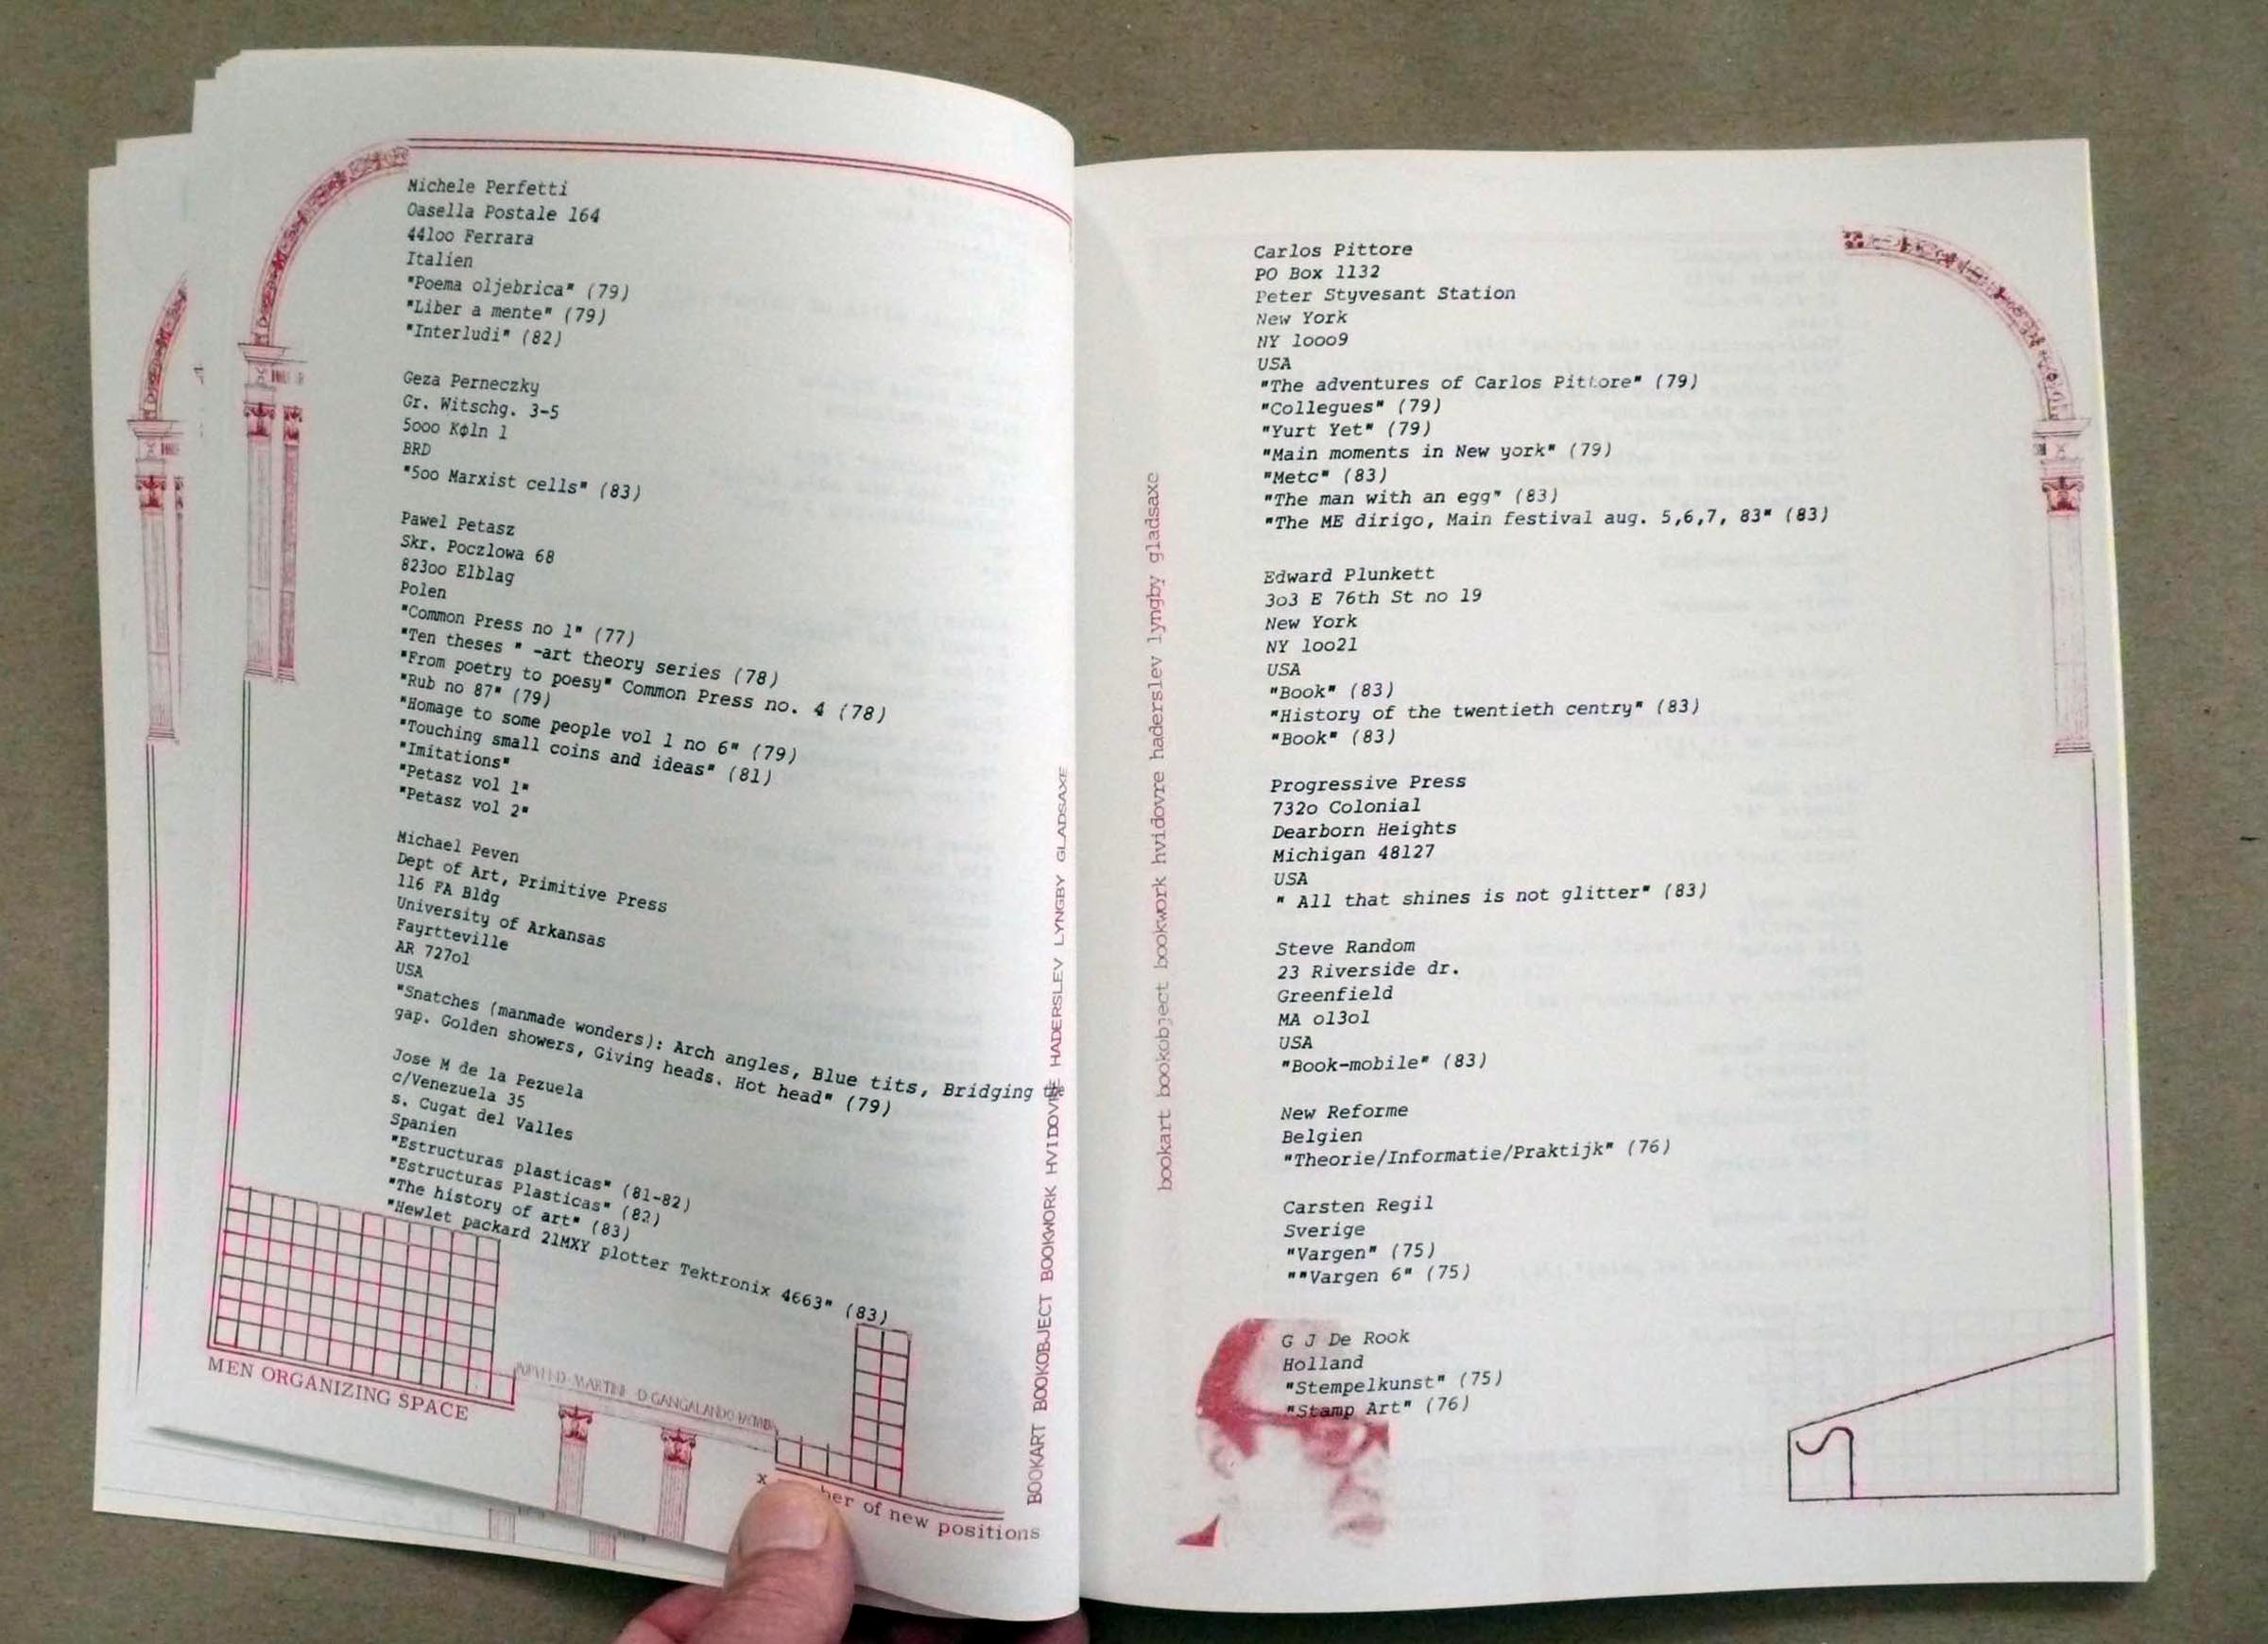 Michele Perfetti
Oasella Postale 164
44loo Ferrara
Italien
"Poema oljebrica" (79)
"Liber a mente" (79)
"Interludi" (82)
Geza Perneczky
Gr. Witschg. 3-5
5ooo Køln 1
BRD
"5oo Marxist cells" (83)
Pawel Petasz
Skr. Poczlowa 68
823oo Elblag
Polen
"Common Press no 1" (77)
"Ten theses " -art theory series (78)
"From poetry to poesy" Common Press no. 4 (78)
"Rub no 87" (79)
"Homage to some people vol 1 no 6" (79)
"Touching small coins and ideas" (81)
"Imitations"
"Petasz vol 1"
"Petasz vol 2"
Michael Peven
Dept of Art, Primitive Press
116 FA Bldg
University of Arkansas
Fayrtteville
AR 727ol
USA
"Snatches (manmade wonders): Arch angles, Blue tits, Bridging
gap. Golden showers, Giving heads. Hot head" (79)
Jose M de la Pezuela
c/Venezuela 35
s. Cugat del Valles
Spanien
"Estructuras plasticas" (81-82)
"Estructuras Plasticas" (82)
"The history of art" (83)
"Hewlet packard 21MXY plotter Tektronix 4663" (83)
MEN ORGANIZING SPACE
MARTINI D GANGALANDO
x
ber of new positions
BOOKART BOOKOBJECT BOOKWORK HVIDOVRE HADERSLEV LYNGBY GLADSAXE
bookart bookobject bookwork hvidovre haderslev lyngby gladsaxe
Carlos Pittore
PO Box 1132
Peter Styvesant Station
New York
NY looo9
USA
"The adventures of Carlos Pittore" (79)
"Collegues" (79)
"Yurt Yet" (79)
"Main moments in New york" (79)
"Metc" (83)
"The man with an egg" (83)
"The ME dirigo, Main festival aug. 5,6,7, 83" (83)
Edward Plunkett
3o3 E 76th St no 19
New York
NY loo21
USA
"Book" (83)
"History of the twentieth centry" (83)
"Book" (83)
Progressive Press
732o Colonial
Dearborn Heights
Michigan 48127
USA
" All that shines is not glitter" (83)
Steve Random
23 Riverside dr.
Greenfield
MA o13ol
USA
"Book-mobile" (83)
New Reforme
Belgien
"Theorie/Informatie/Praktijk" (76)
Carsten Regil
Sverige
"Vargen" (75)
""Vargen 6" (75)
G J De Rook
Holland
"Stempelkunst" (75)
"Stamp Art" (76)